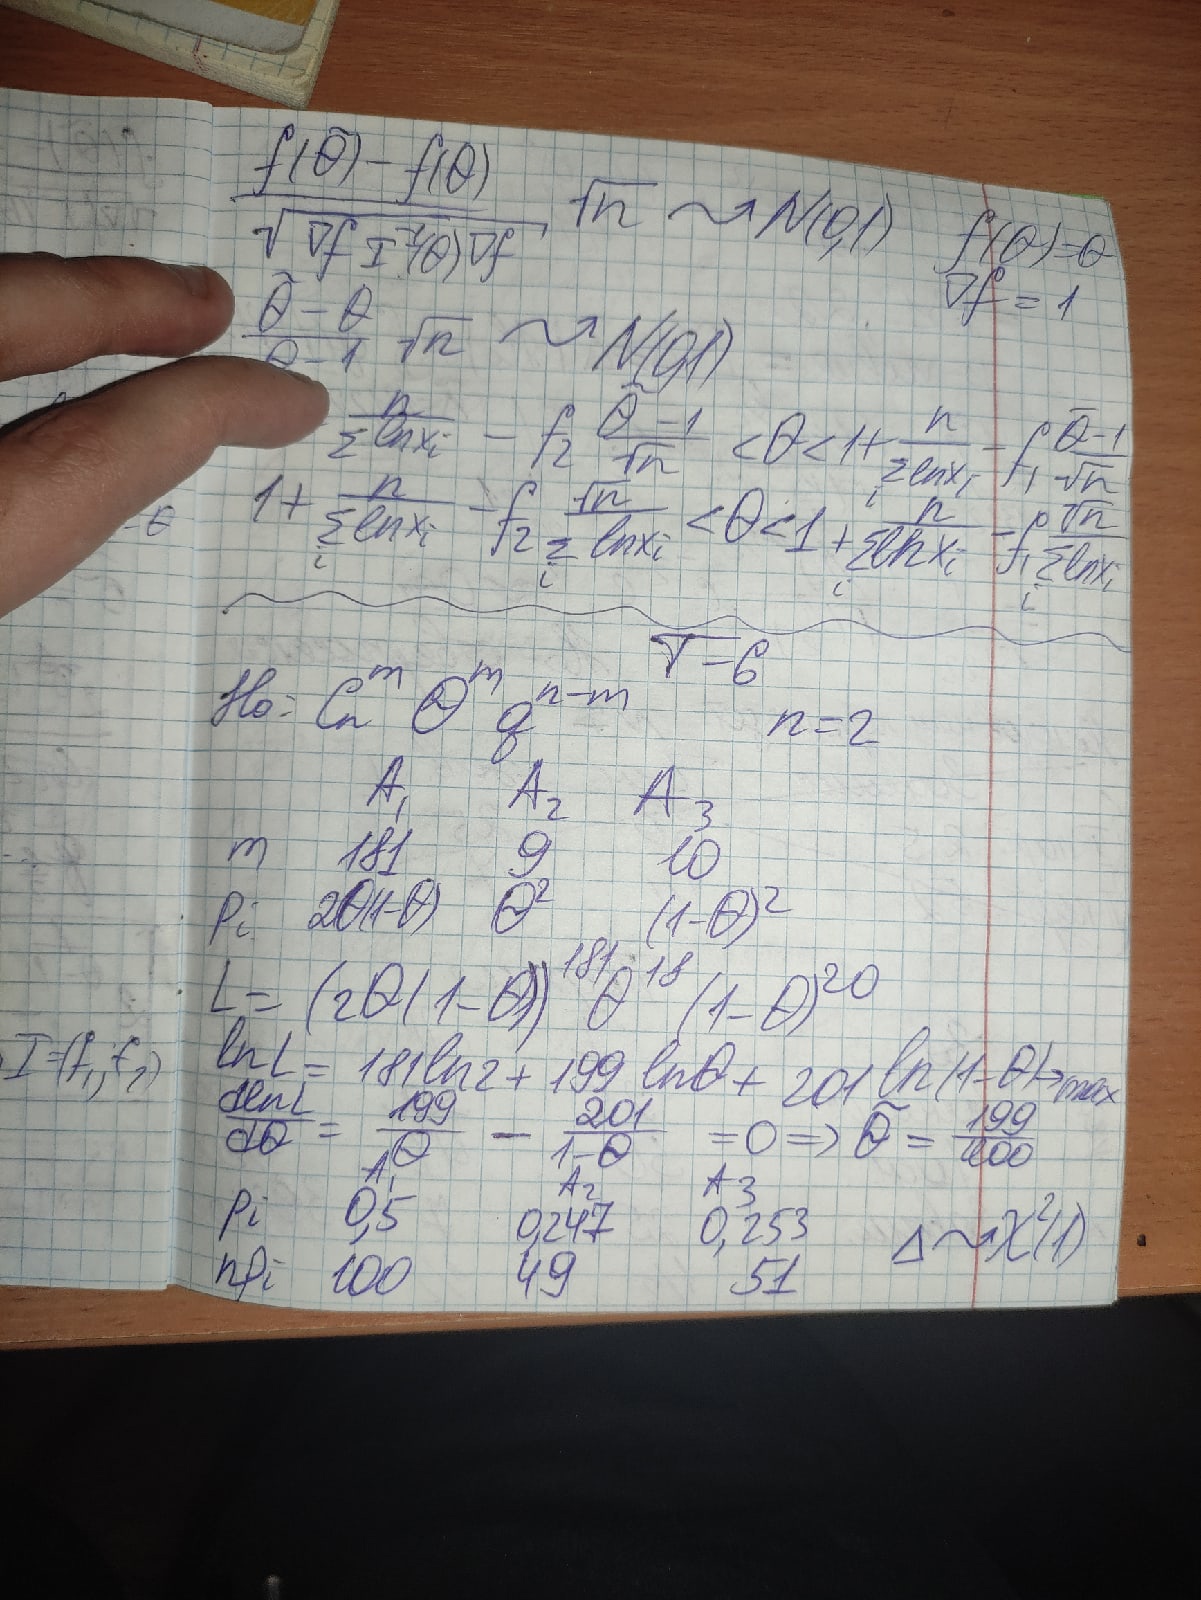 f(θ̃) − f(θ) / √(∇f I⁻¹(θ) ∇f) √n ⇝ N(0,1)
f(θ)=θ
∇f = 1
θ̃ − θ / θ−1 √n ⇝ N(0,1)
n / Σ ln xᵢ − f₂ (θ̃−1)/√n < θ < 1 + n / Σᵢ ln xᵢ − f₁ (θ̃−1)/√n
1 + n / Σᵢ ln xᵢ − f₂ √n / Σᵢ ln xᵢ < θ < 1 + n / Σᵢ ln xᵢ − f₁ √n / Σᵢ ln xᵢ
T−6
H₀: Cₙᵐ θᵐ qⁿ⁻ᵐ n=2
A₁ A₂ A₃
m 181 9 10
pᵢ 2θ(1−θ) θ² (1−θ)²
L = (2θ(1−θ))¹⁸¹ θ¹⁸ (1−θ)²⁰
lnL = 181 ln2 + 199 lnθ + 201 ln(1−θ) → max
dlnL/dθ = 199/θ − 201/(1−θ) = 0 ⇒ θ̃ = 199/400
A₁ A₂ A₃
pᵢ 0,5 0,247 0,253
Δ ⇝ χ²(1)
npᵢ 100 49 51
I=(f₁, f₂)